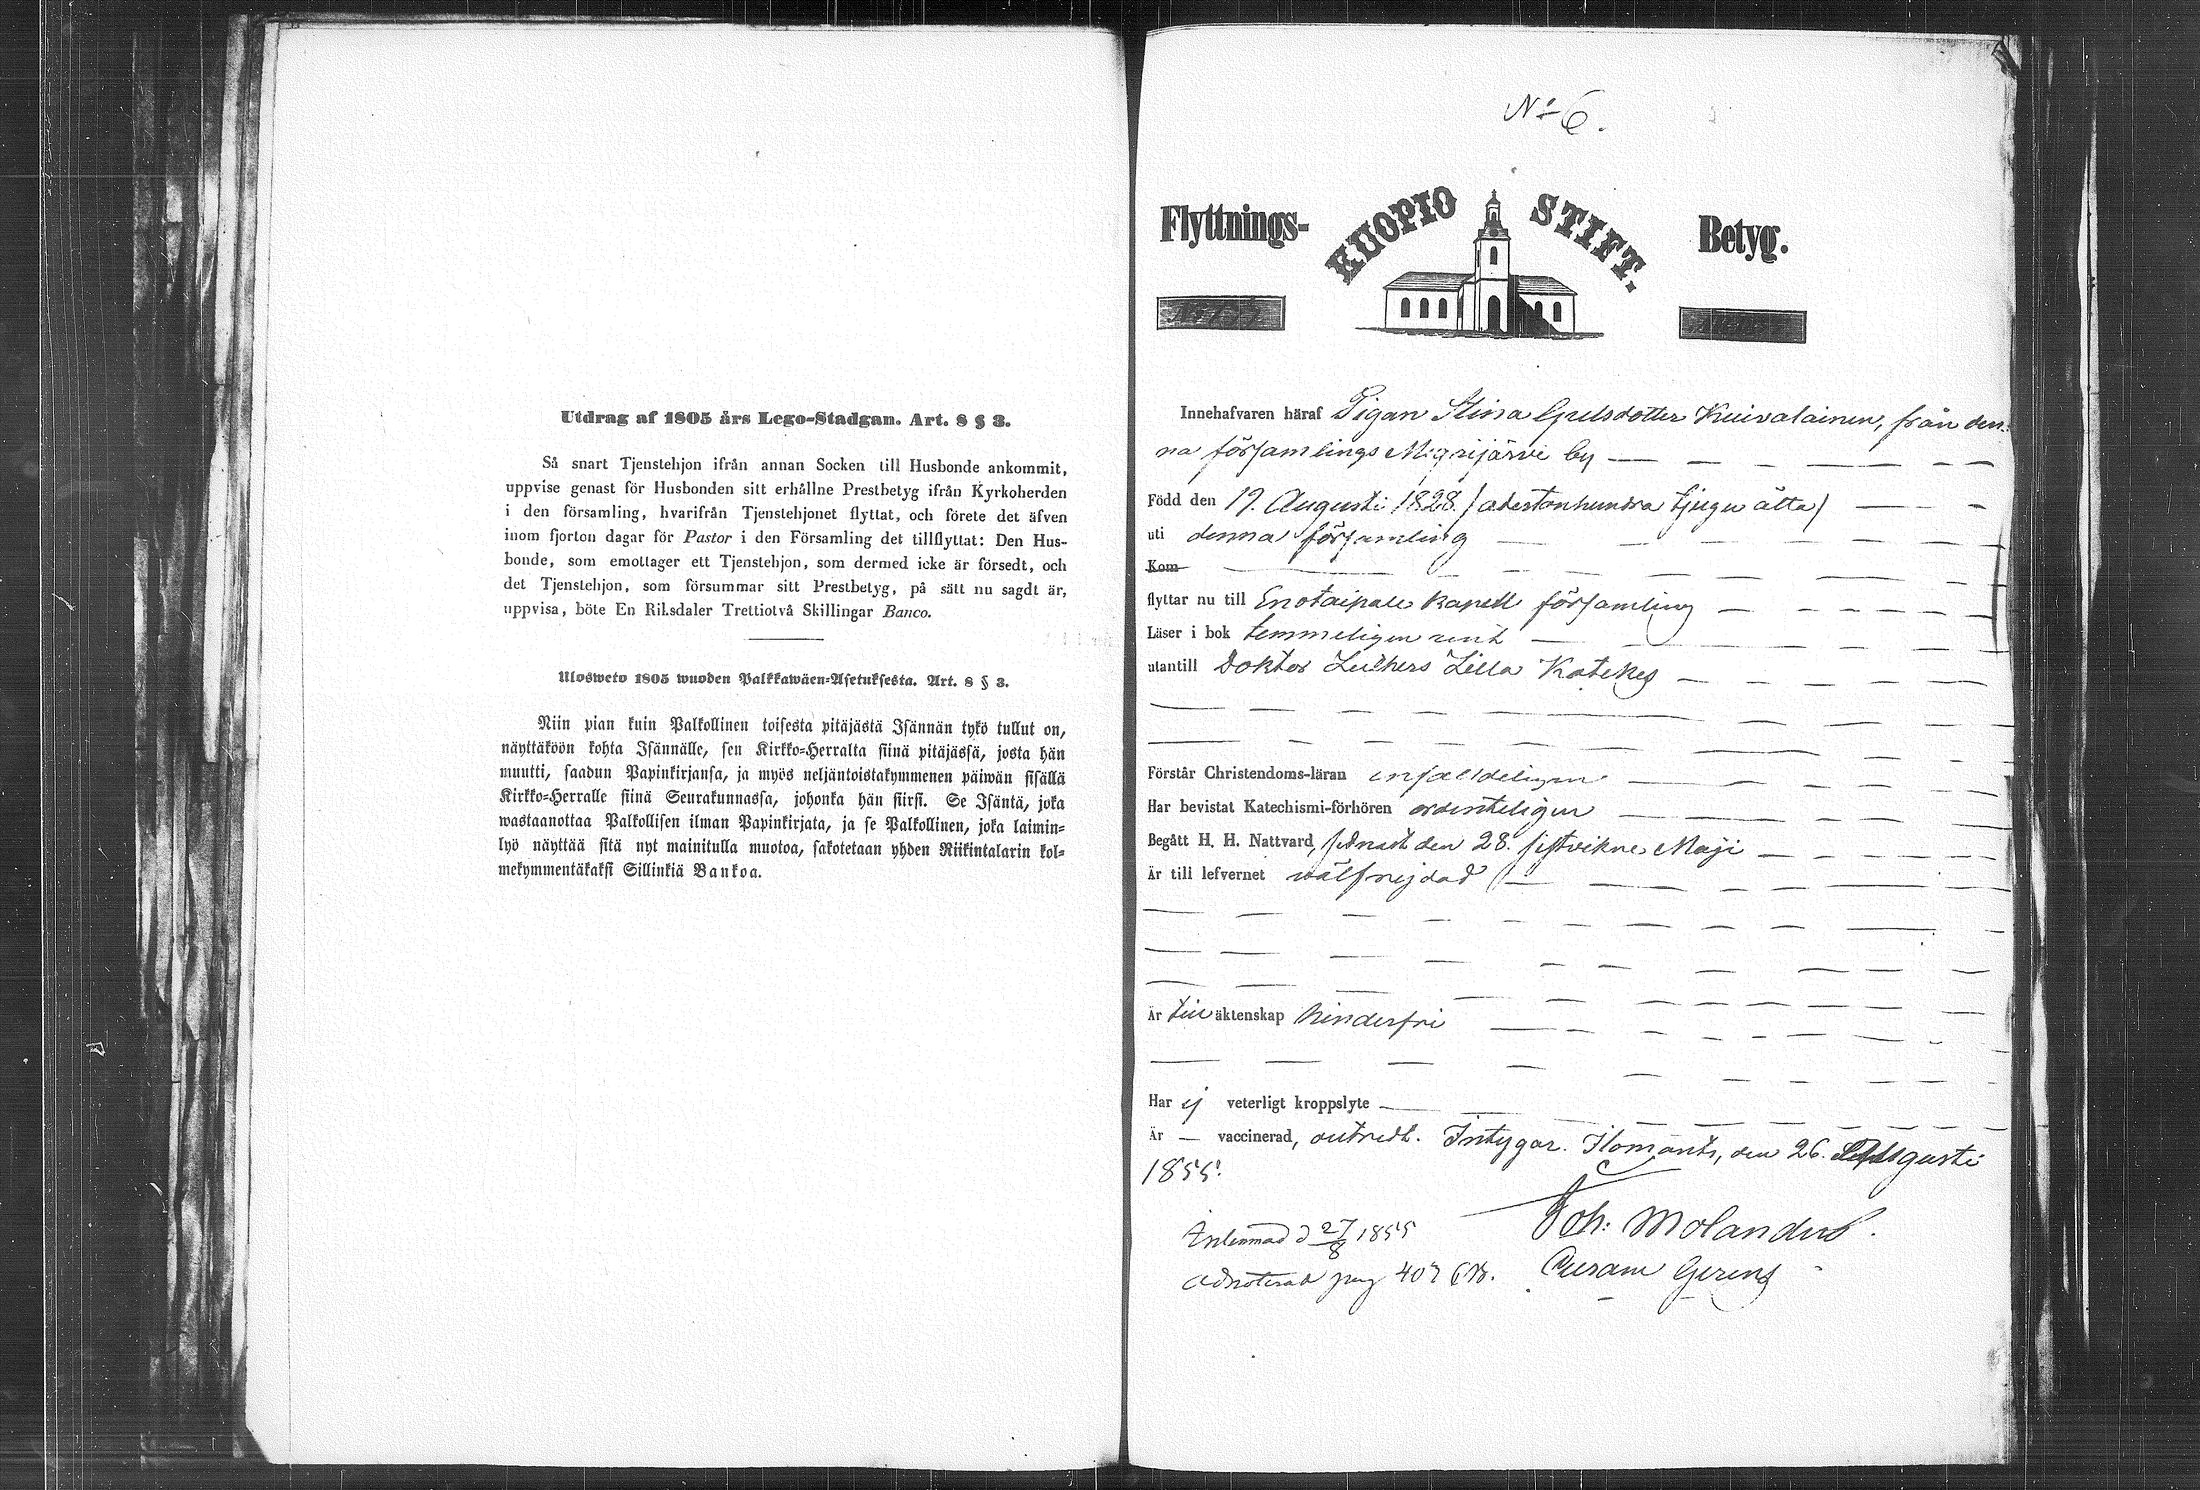 Utdrag af 1805 års Lego-Stadgan. Art. 8 § 3.
Så snart Tjenstehjon ifrån annan Socken till Husbonde ankommit,
uppvise genast för Husbonden sitt erhållne Prestbetyg ifrån Kyrkoherden
i den församling, hvarifrån Tjenstehjonet flyttat, och förete det äfven
inom fjorton dagar för Pastor i den Församling det tillflyttat: Den Hus-
bonde, som emottager ett Tjenstehjon, som dermed icke är försedt, och
det Tjenstehjon, som försummar sitt Prestbetyg, på sätt nu sagdt är,
uppvisa, böte En Riksdaler Trettiotvå Skillingar Banco.
Ulosweto 1805 wuoden Palkkawäen-Asetuksesta. Art. 8 § 3.
Niin pian kuin Palkollinen toisesta pitäjästä Isännän tykö tullut on,
näyttäköön kohta Isännälle, sen Kirkko-Herralta siinä pitäjässä, josta hän
muutti, saadun Papinkirjansa, ja myös neljäntoistakymmenen päiwän sisällä
Kirkko-Herralle siinä Seurakunnassa, johonka hän siirsi. Se Isäntä, joka
wastaanottaa Palkollisen ilman Papinkirjata, ja se Palkollinen, joka laimin-
lyö näyttää sitä nyt mainitulla muotoa, sakotetaan yhden Riikintalarin kol-
mekymmentäkaksi Sillinkiä Bankoa.
No 6.
Flyttnings- KUOPIO STIFT. Betyg.
Innehafvaren häraf Pigan Stina Kuivalainen, från den-
na församlings Megrijärvi by
Född den 19. Augusti 1828. /adertonhundra tjugu åtta/
uti denna församling
Kom
flyttar nu till Enotaipale kapell församling
Läser i bok temmeligen rent
utantill Doktor Luthers Lilla Katekes
Förstår Christendoms-läran enfaldeligen
Har bevistat Katechismi-förhören ordenteligen
Begått H. H. Nattvard, sednast den 28. sistvikne Maji
Är till lefvernet wälfrejdad
Är till äktenskap hinderfri
Har ej veterligt kroppslyte
Är — vaccinerad, Intygar. Ilomants, den 26. Augusti
1855.
Joh: Molandus.
Inlemnad d 27/8 1855
Adnoterad pag 407 CB. Curam Gerens